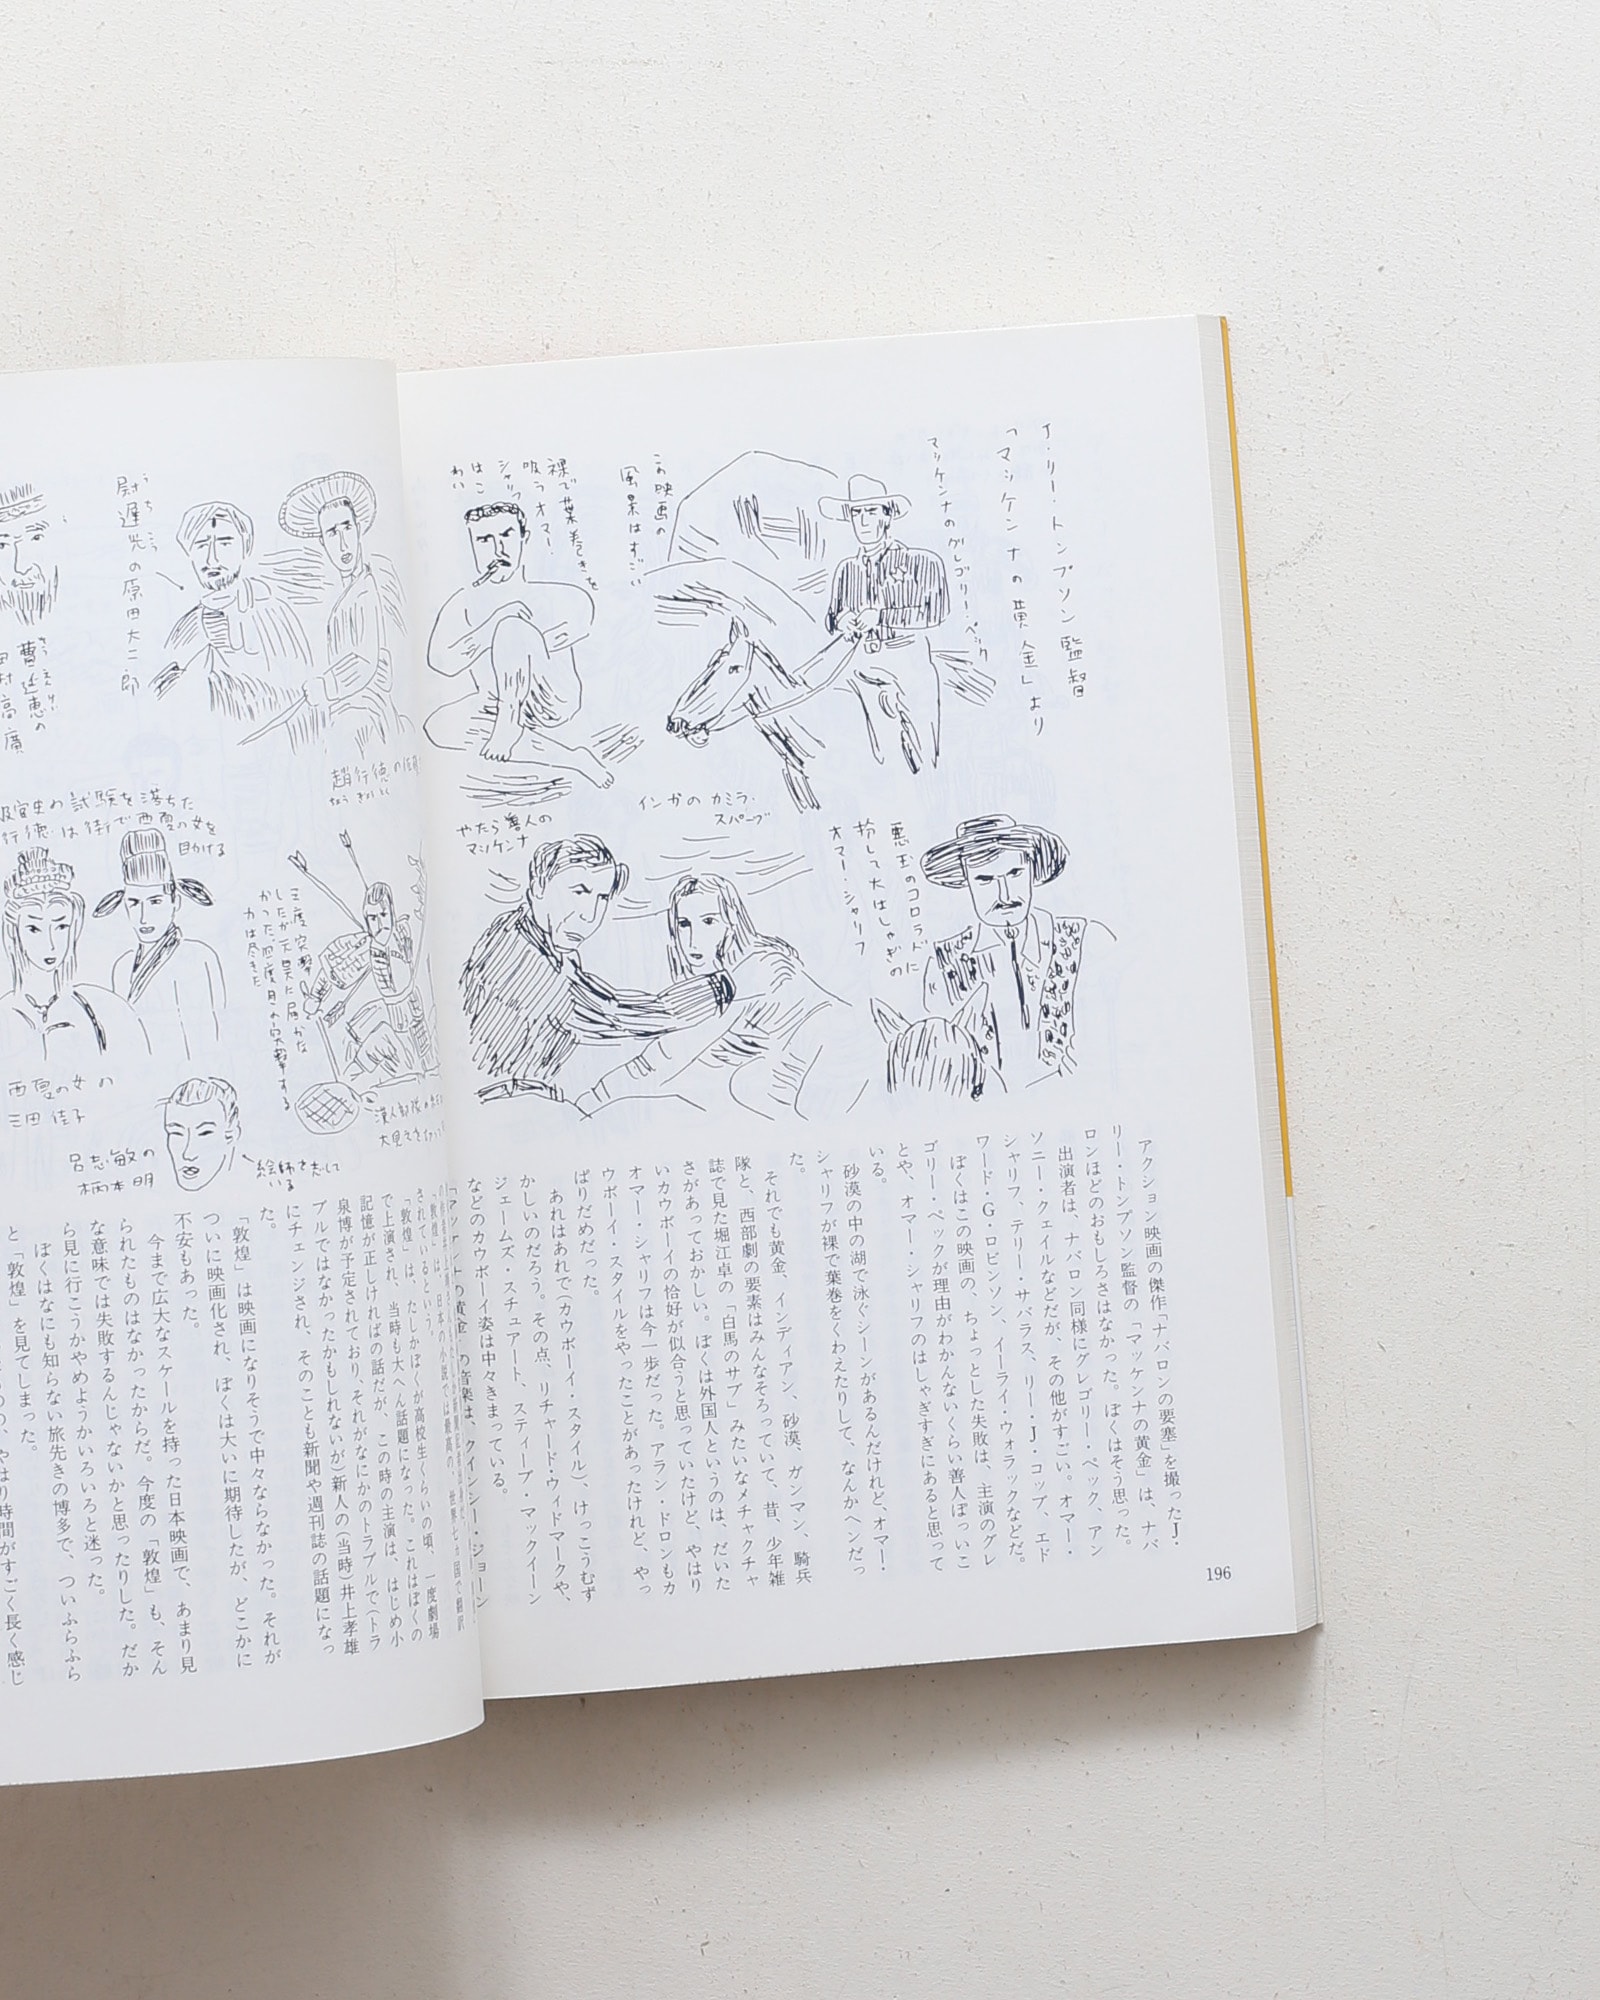 J・リー・トンプソン監督
「マッケンナの黄金」より
マッケンナのグレゴリー・ペック
この映画の
風景はすごい
裸で葉巻きを
吸うオマー・
シャリフ
はこ
わい
インガのカミラ・
スパーブ
やたら善人の
マッケンナ
悪玉のコロラドに
扮して大はしゃぎの
オマー・シャリフ
アクション映画の傑作「ナバロンの要塞」を撮ったJ・
リー・トンプソン監督の「マッケンナの黄金」は、ナバ
ロンほどのおもしろさはなかった。ぼくはそう思った。
出演者は、ナバロン同様にグレゴリー・ペック、アン
ソニー・クェイルなどだが、その他がすごい。オマー・
シャリフ、テリー・サバラス、リー・J・コップ、エド
ワード・G・ロビンソン、イーライ・ウォラックなどだ。
ぼくはこの映画の、ちょっとした失敗は、主演のグレ
ゴリー・ペックが理由がわかんないくらい善人ぽっいこ
とや、オマー・シャリフのはしゃぎすぎにあると思って
いる。
砂漠の中の湖で泳ぐシーンがあるんだけれど、オマー・
シャリフが裸で葉巻をくわえたりして、なんかヘンだっ
た。
それでも黄金、インディアン、砂漠、ガンマン、騎兵
隊と、西部劇の要素はみんなそろっていて、昔、少年雑
誌で見た堀江卓の「白馬のサブ」みたいなメチャクチャ
さがあっておかしい。ぼくは外国人というのは、だいた
いカウボーイの恰好が似合うと思っていたけど、やはり
オマー・シャリフは今一歩だった。アラン・ドロンもカ
ウボーイ・スタイルをやったことがあったけれど、やっ
ぱりだめだった。
あれはあれで(カウボーイ・スタイル)、けっこうむず
かしいのだろう。その点、リチャード・ウィドマークや、
ジェームズ・スチュアート、スティーブ・マックイーン
などのカウボーイ姿は中々きまっている。
「マッケンナの黄金」の音楽は、クインシー・ジョーン
196
尉遅光の原田大二郎
うっち こう
曹延恵の
田村高廣
趙行徳の佐
ちょう ぎょうとく
行徳は街で西夏の女を
助ける
三度突撃
したが元昊に届かな
かった。四度目の突撃する
力は尽きた
西夏の女の
三田佳子
呂志敏の
柄本明
絵師を志して
いる
されているという。
「敦煌」は、たしかぼくが高校生くらいの頃、一度劇場
で上演され、当時も大へん話題になった。これはぼくの
記憶が正しければの話だが、この時の主演は、はじめ小
泉博が予定されており、それがなにかのトラブルで(トラ
ブルではなかったかもしれないが)新人の(当時)井上孝雄
にチェンジされ、そのことも新聞や週刊誌の話題になっ
た。
「敦煌」は映画になりそうで中々ならなかった。それが
ついに映画化され、ぼくは大いに期待したが、どこかに
不安もあった。
今まで広大なスケールを持った日本映画で、あまり見
られたものはなかったからだ。今度の「敦煌」も、そん
な意味では失敗するんじゃないかと思ったりした。だか
ら見に行こうかやめようかいろいろと迷った。
ぼくはなにも知らない旅先きの博多で、ついふらふら
と「敦煌」を見てしまった。
やはり時間がすごく長く感じ